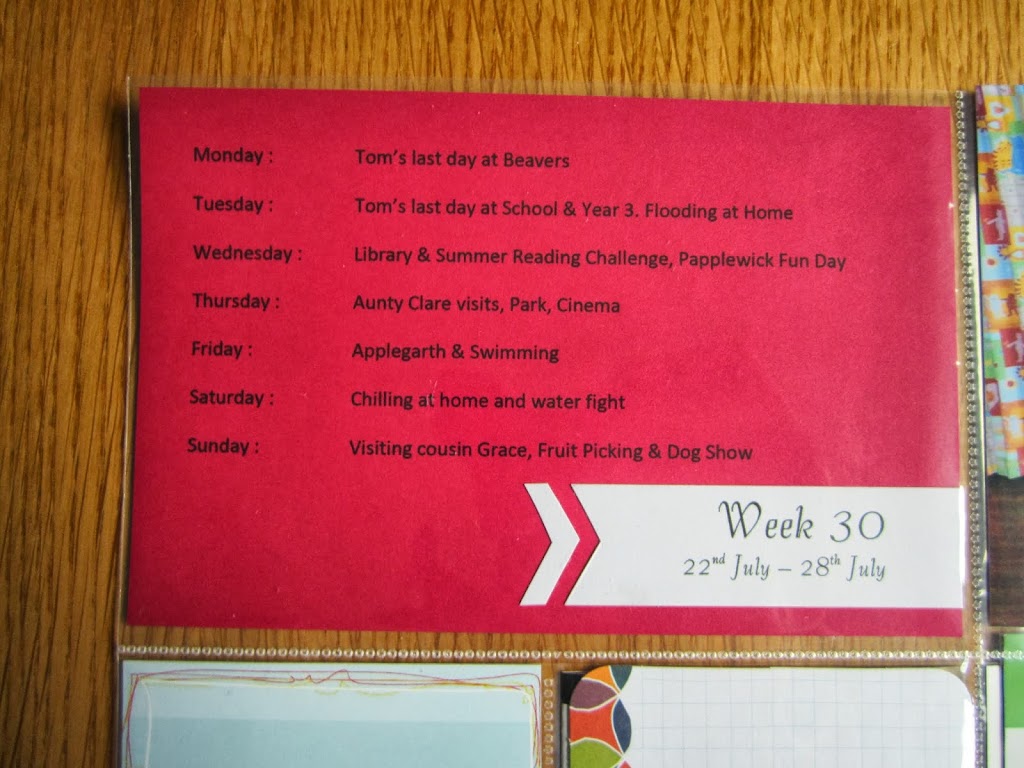 Monday : Tom's last day at Beavers
Tuesday : Tom's last day at School & Year 3. Flooding at Home
Wednesday : Library & Summer Reading Challenge, Papplewick Fun Day
Thursday : Aunty Clare visits, Park, Cinema
Friday : Applegarth & Swimming
Saturday : Chilling at home and water fight
Sunday : Visiting cousin Grace, Fruit Picking & Dog Show
Week 30
22nd July – 28th July